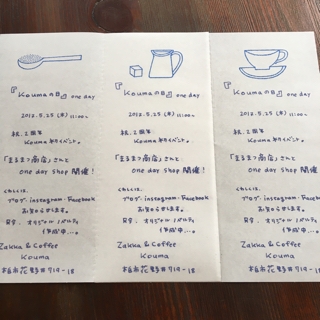 『Koumaの日』 one day
2012.5.25 (金) 11:00~
祝.2周年
Kouma初イベント。
「まるまつ商店」さんと
one day shop 開催!
くわしくは、
ブログ・instagram・Facebook
お知らせします。
只今、オリジナルノベルティ
作成中...。
Zakka & Coffee
Kouma
柏市花野井719-18
『Koumaの日』 one day
2012.5.25 (金) 11:00~
祝.2周年
Kouma初イベント。
「まるまつ商店」さんと
one day shop 開催!
くわしくは、
ブログ・instagram・Facebook
お知らせします。
只今、オリジナルノベルティ
作成中...。
Zakka & Coffee
Kouma
柏市花野井719-18
『Koumaの日』 one day
2012.5.25 (金) 11:00~
祝.2周年
Kouma初イベント。
「まるまつ商店」さんと
one day shop 開催!
くわしくは、
ブログ・instagram・Facebook
お知らせします。
只今、オリジナルノベルティ
作成中...。
Zakka & Coffee
Kouma
柏市花野井719-18